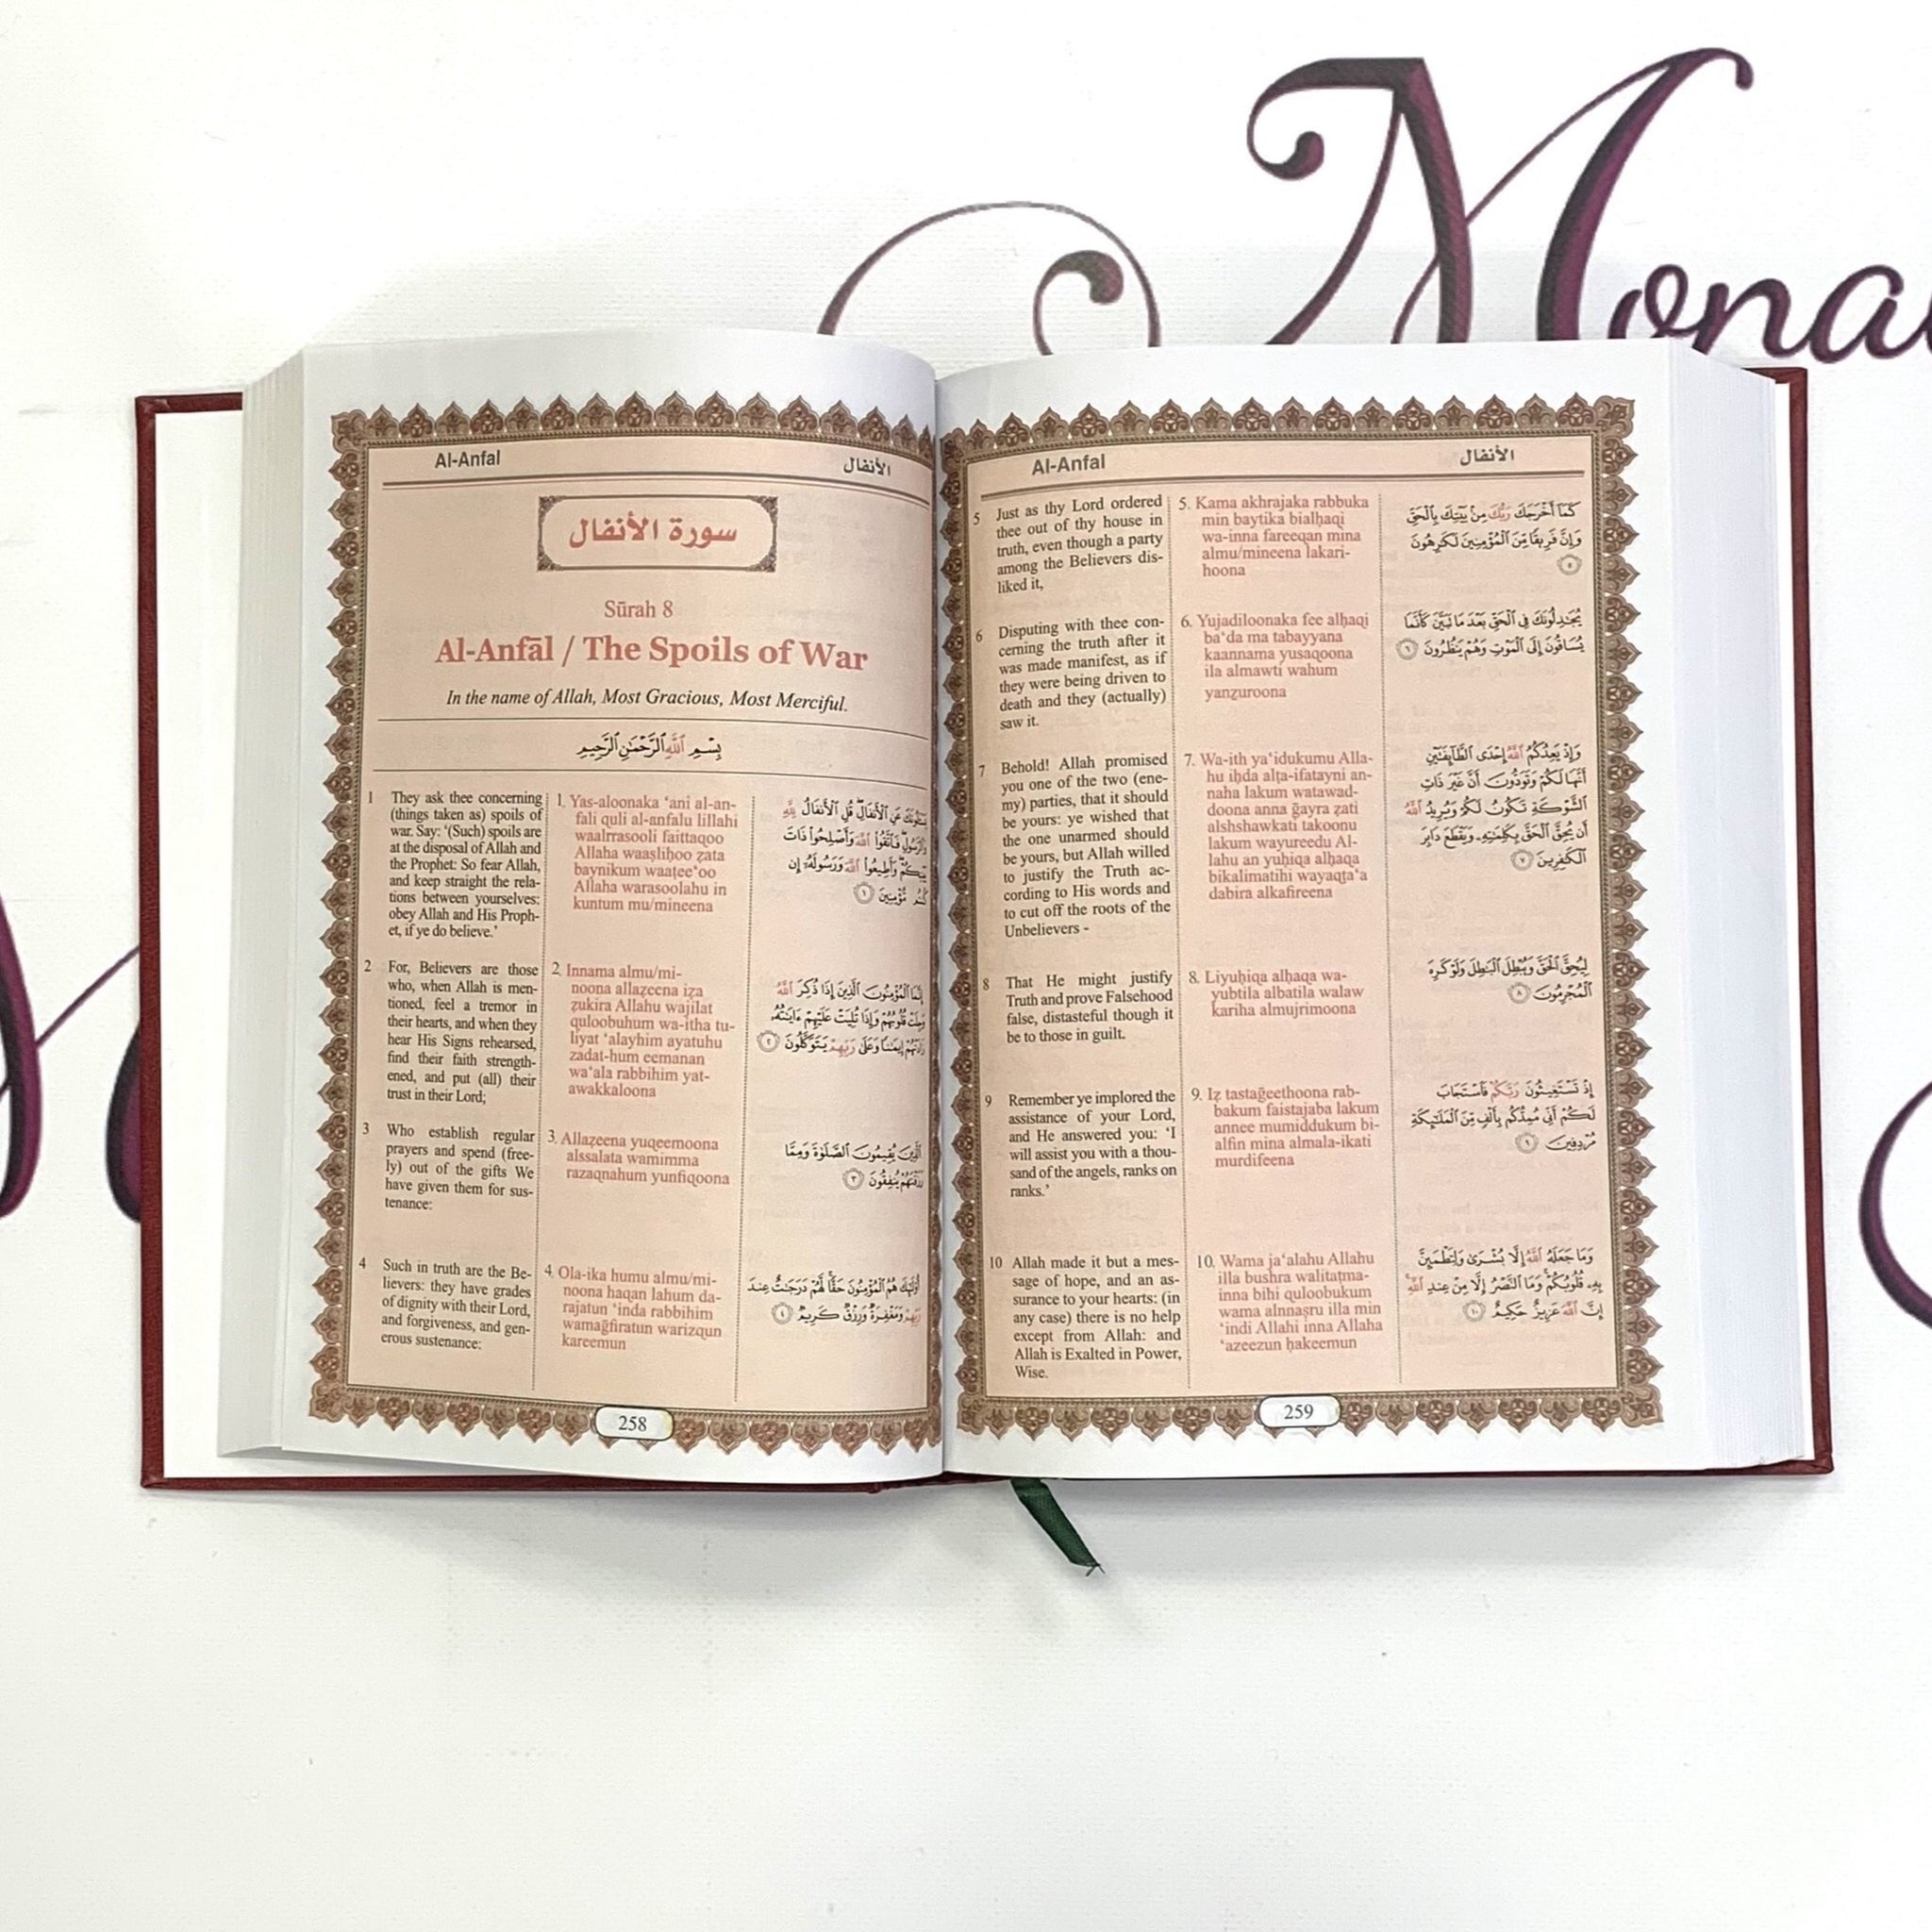 Mona
Al-Anfal
الأنفال
سورة الأنفال
Sūrah 8
Al-Anfāl / The Spoils of War
In the name of Allah, Most Gracious, Most Merciful.
بِسْمِ ٱللَّهِ ٱلرَّحْمَٰنِ ٱلرَّحِيمِ
1 They ask thee concerning
(things taken as) spoils of
war. Say: ‘(Such) spoils are
at the disposal of Allah and
the Prophet: So fear Allah,
and keep straight the rela-
tions between yourselves:
obey Allah and His Proph-
et, if ye do believe.’
1. Yas-aloonaka ‘ani al-an-
fali quli al-anfalu lillahi
waalrrasooli faittaqoo
Allaha waaṣliḥoo ẓata
baynikum waaṭee‘oo
Allaha warasoolahu in
kuntum mu/mineena
عَنِ ٱلْأَنفَالِ ۖ قُلِ ٱلْأَنفَالُ لِلَّهِ
وَٱلرَّسُولِ ۖ فَٱتَّقُوا۟ ٱللَّهَ وَأَصْلِحُوا۟ ذَاتَ
بَيْنِكُمْ ۖ وَأَطِيعُوا۟ ٱللَّهَ وَرَسُولَهُۥٓ إِن
كُنتُم مُّؤْمِنِينَ ١
2 For, Believers are those
who, when Allah is men-
tioned, feel a tremor in
their hearts, and when they
hear His Signs rehearsed,
find their faith strength-
ened, and put (all) their
trust in their Lord;
2. Innama almu/mi-
noona allaẓeena iẓa
ẓukira Allahu wajilat
quloobuhum wa-itha tu-
liyat ‘alayhim ayatuhu
zadat-hum eemanan
wa‘ala rabbihim yat-
awakkaloona
إِنَّمَا ٱلْمُؤْمِنُونَ ٱلَّذِينَ إِذَا ذُكِرَ ٱللَّهُ
وَجِلَتْ قُلُوبُهُمْ وَإِذَا تُلِيَتْ عَلَيْهِمْ ءَايَٰتُهُۥ
زَادَتْهُمْ إِيمَٰنًا وَعَلَىٰ رَبِّهِمْ يَتَوَكَّلُونَ ٢
3 Who establish regular
prayers and spend (free-
ly) out of the gifts We
have given them for sus-
tenance:
3. Allaẓeena yuqeemoona
alssalata wamimma
razaqnahum yunfiqoona
ٱلَّذِينَ يُقِيمُونَ ٱلصَّلَوٰةَ وَمِمَّا
رَزَقْنَٰهُمْ يُنفِقُونَ ٣
4 Such in truth are the Be-
lievers: they have grades
of dignity with their Lord,
and forgiveness, and gen-
erous sustenance:
4. Ola-ika humu almu/mi-
noona haqan lahum da-
rajatun ‘inda rabbihim
wamağfiratun warizqun
kareemun
أُو۟لَٰٓئِكَ هُمُ ٱلْمُؤْمِنُونَ حَقًّا ۚ لَّهُمْ دَرَجَٰتٌ عِندَ
رَبِّهِمْ وَمَغْفِرَةٌ وَرِزْقٌ كَرِيمٌ ٤
258
Al-Anfal
الأنفال
5 Just as thy Lord ordered
thee out of thy house in
truth, even though a party
among the Believers dis-
liked it,
5. Kama akhrajaka rabbuka
min baytika bialḥaqi
wa-inna fareeqan mina
almu/mineena lakari-
hoona
كَمَآ أَخْرَجَكَ رَبُّكَ مِنۢ بَيْتِكَ بِٱلْحَقِّ
وَإِنَّ فَرِيقًا مِّنَ ٱلْمُؤْمِنِينَ لَكَٰرِهُونَ
٥
6 Disputing with thee con-
cerning the truth after it
was made manifest, as if
they were being driven to
death and they (actually)
saw it.
6. Yujadiloonaka fee alḥaqi
ba‘da ma tabayyana
kaannama yusaqoona
ila almawti wahum
yanẓuroona
يُجَٰدِلُونَكَ فِى ٱلْحَقِّ بَعْدَ مَا تَبَيَّنَ كَأَنَّمَا
يُسَاقُونَ إِلَى ٱلْمَوْتِ وَهُمْ يَنظُرُونَ ٦
7 Behold! Allah promised
you one of the two (ene-
my) parties, that it should
be yours: ye wished that
the one unarmed should
be yours, but Allah willed
to justify the Truth ac-
cording to His words and
to cut off the roots of the
Unbelievers -
7. Wa-ith ya‘idukumu Alla-
hu iḥda alṭa-ifatayni an-
naha lakum watawad-
doona anna ğayra ẓati
alshshawkati takoonu
lakum wayureedu Al-
lahu an yuḥiqa alḥaqa
bikalimatihi wayaqṭa‘a
dabira alkafireena
وَإِذْ يَعِدُكُمُ ٱللَّهُ إِحْدَى ٱلطَّآئِفَتَيْنِ
أَنَّهَا لَكُمْ وَتَوَدُّونَ أَنَّ غَيْرَ ذَاتِ
ٱلشَّوْكَةِ تَكُونُ لَكُمْ وَيُرِيدُ ٱللَّهُ
أَن يُحِقَّ ٱلْحَقَّ بِكَلِمَٰتِهِۦ وَيَقْطَعَ دَابِرَ
ٱلْكَٰفِرِينَ ٧
8 That He might justify
Truth and prove Falsehood
false, distasteful though it
be to those in guilt.
8. Liyuḥiqa alḥaqa wa-
yubtila albatila walaw
kariha almujrimoona
لِيُحِقَّ ٱلْحَقَّ وَيُبْطِلَ ٱلْبَٰطِلَ وَلَوْ كَرِهَ
ٱلْمُجْرِمُونَ ٨
9 Remember ye implored the
assistance of your Lord,
and He answered you: ‘I
will assist you with a thou-
sand of the angels, ranks on
ranks.’
9. Iẓ tastağeethoona rab-
bakum faistajaba lakum
annee mumiddukum bi-
alfin mina almala-ikati
murdifeena
إِذْ تَسْتَغِيثُونَ رَبَّكُمْ فَٱسْتَجَابَ
لَكُمْ أَنِّى مُمِدُّكُم بِأَلْفٍ مِّنَ ٱلْمَلَٰٓئِكَةِ
مُرْدِفِينَ ٩
10 Allah made it but a mes-
sage of hope, and an as-
surance to your hearts: (in
any case) there is no help
except from Allah: and
Allah is Exalted in Power,
Wise.
10. Wama ja‘alahu Allahu
illa bushra walitaṭma-
inna bihi quloobukum
wama alnnaṣru illa min
‘indi Allahi inna Allaha
‘azeezun ḥakeemun
وَمَا جَعَلَهُ ٱللَّهُ إِلَّا بُشْرَىٰ وَلِتَطْمَئِنَّ
بِهِۦ قُلُوبُكُمْ ۚ وَمَا ٱلنَّصْرُ إِلَّا مِنْ عِندِ ٱللَّهِ ۚ
إِنَّ ٱللَّهَ عَزِيزٌ حَكِيمٌ ١٠
259